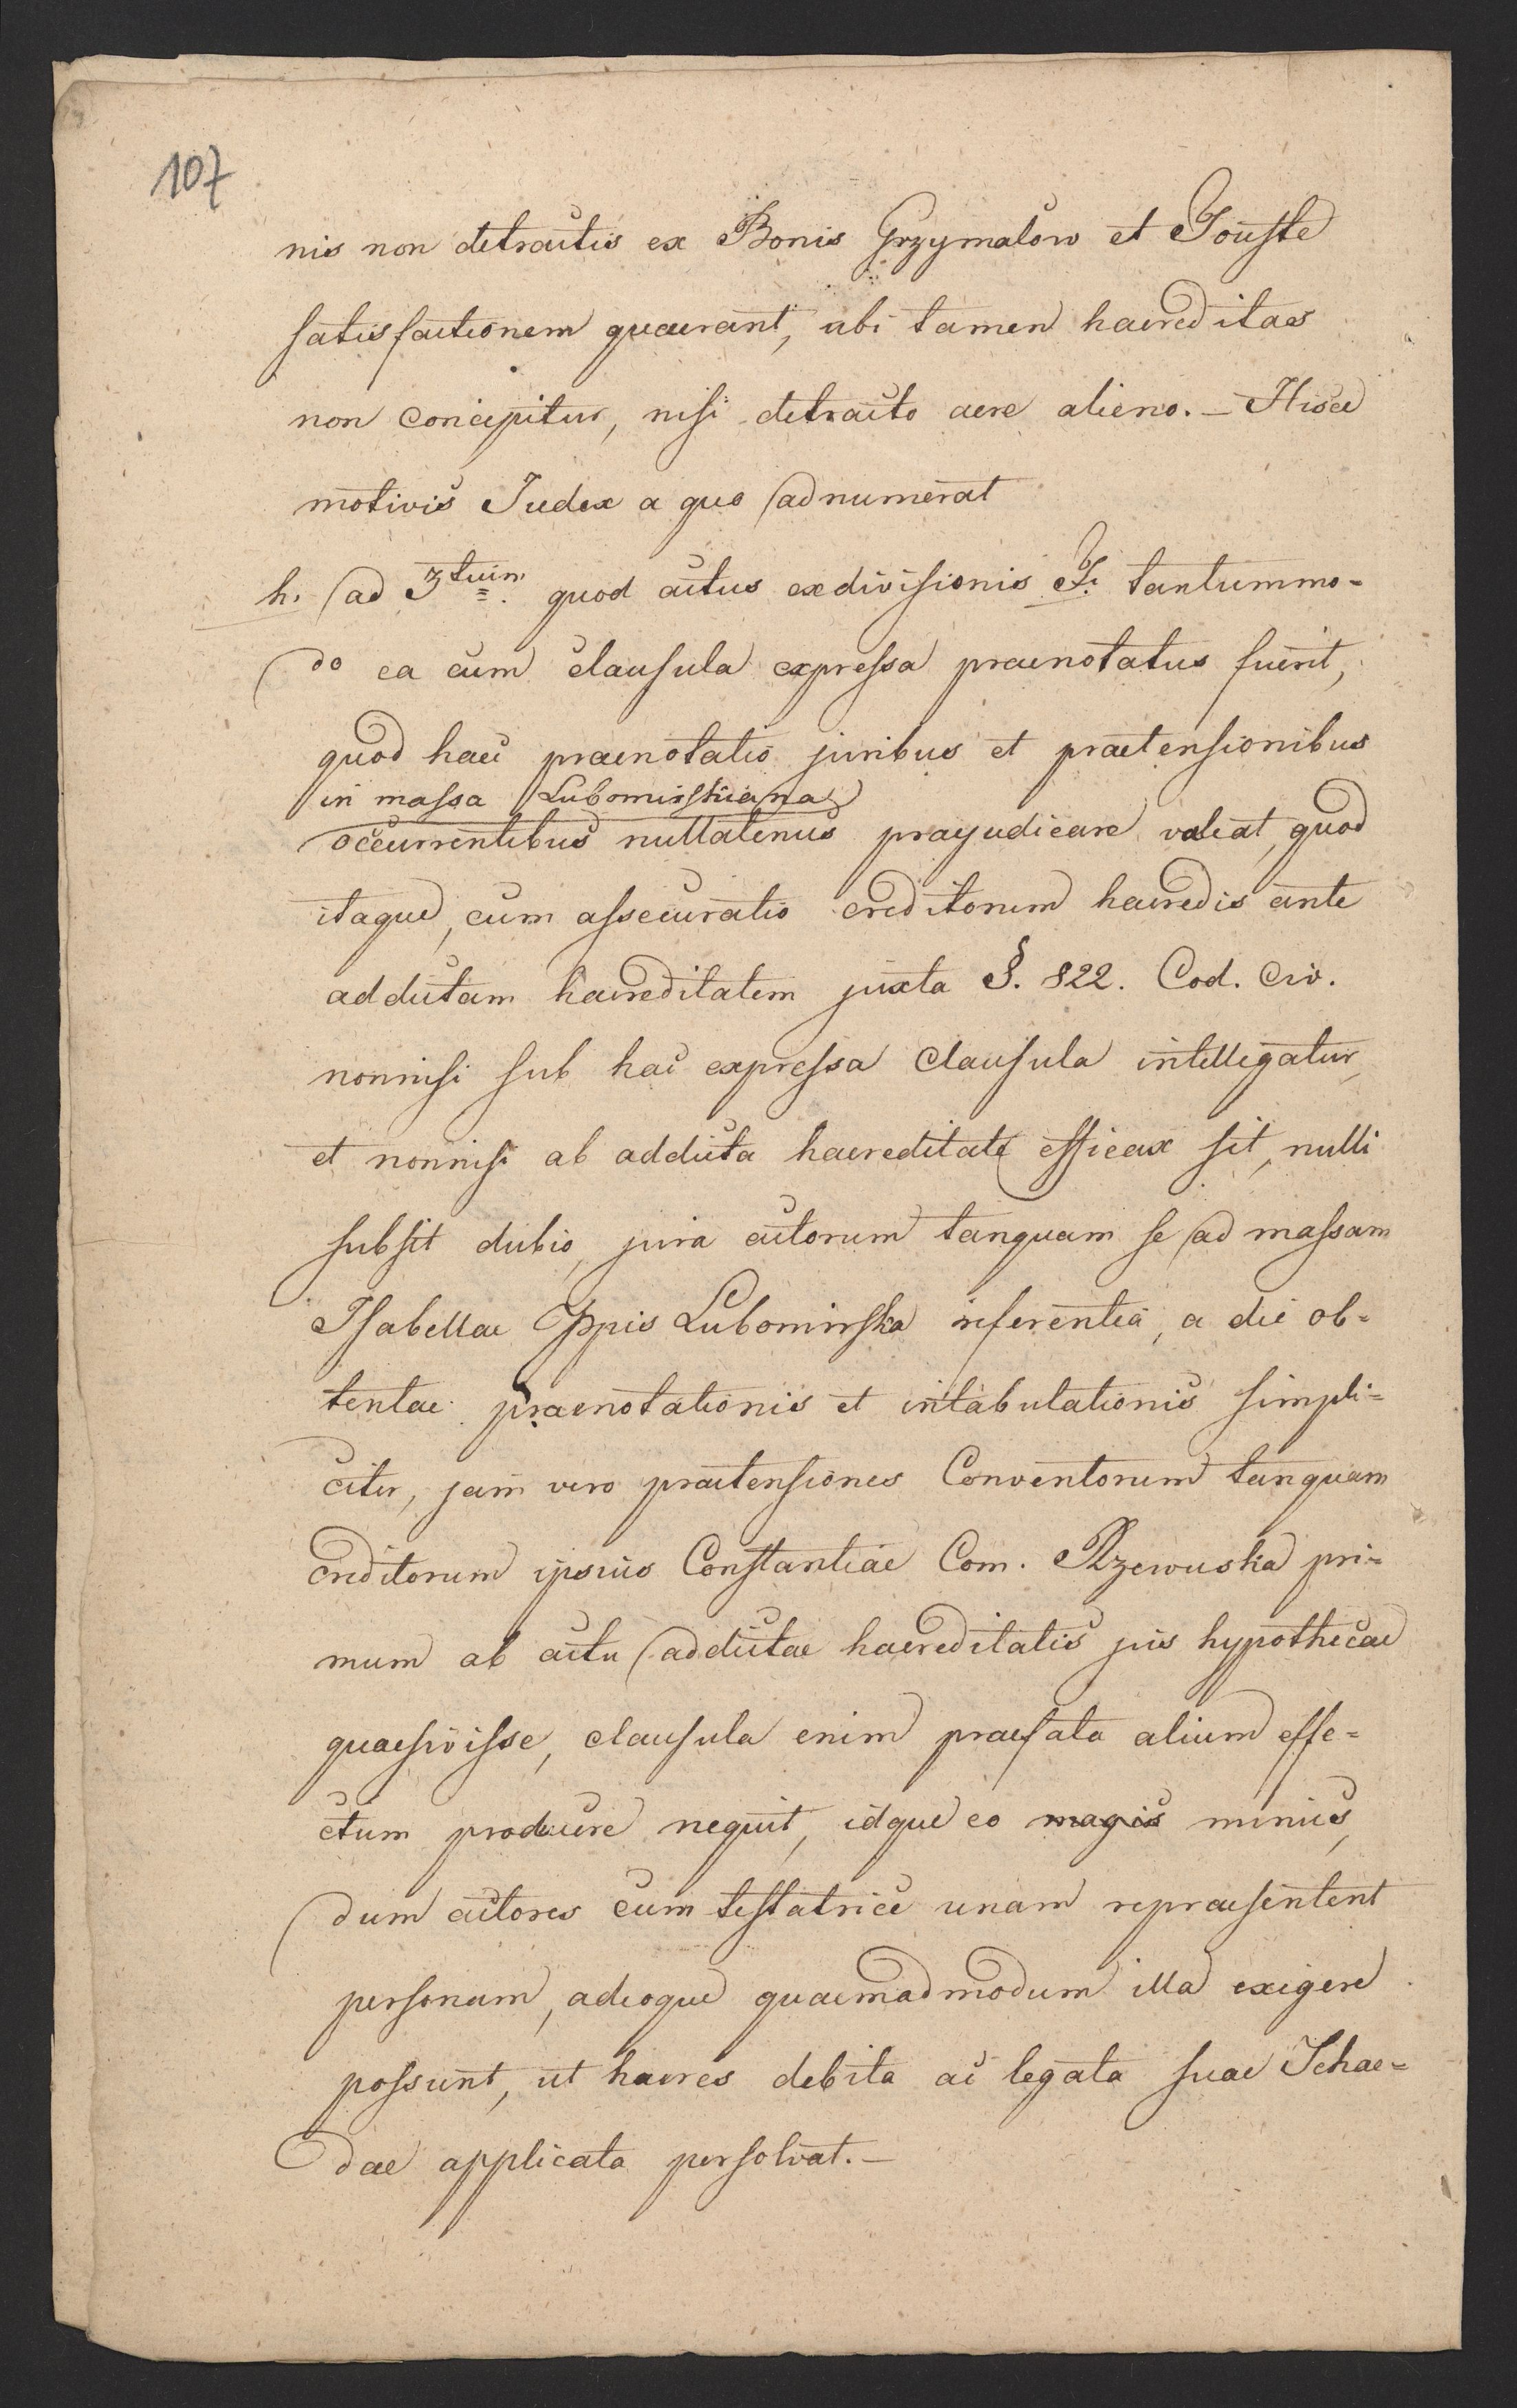 107
nis non detractis ex Bonis Grzymałow et Touste
satisfactionem quaerant, ubi tamen haereditas
non concipitur, nisi detracto aere alieno. – Hisce
motivis Judex a quo adnumerat
h. ad 3tium quod actus exdivisionis F. tantummo-
do ea cum clausula expressa praenotatus fuerit,
quod haec praenotatio juribus et praetensionibus
in massa Lubomirskiana
occurrentibus nullatenus praejudicare valeat, quod
itaque, cum assecuratio creditorum haeredis ante
addictam haereditatem juxta §. 822. Cod. Civ.
nonnisi sub hac expressa clausula intelligatur,
et nonnisi ab addicta haereditate efficax sit, nulli
subsit dubio, jura actorum tanquam se ad massam
Isabellae Ppis Lubomirska referentia, a die ob-
tentae praenotationis et intabulationis simpli-
citer, jam vero praetensiones Conventorum tanquam
creditorum ipsius Constantiae Com. Rzewuska pri-
mum ab actu addictae haereditatis jus hypothecae
quaesivisse, clausula enim praefata alium effe-
ctum producere nequit, idque eo magis minus,
dum actores cum testatrice unam repraesentent
personam, adeoque quaemadmodum illa exigere
possunt, ut haeres debita ac legata suae Schae-
dae applicata persolvat. –